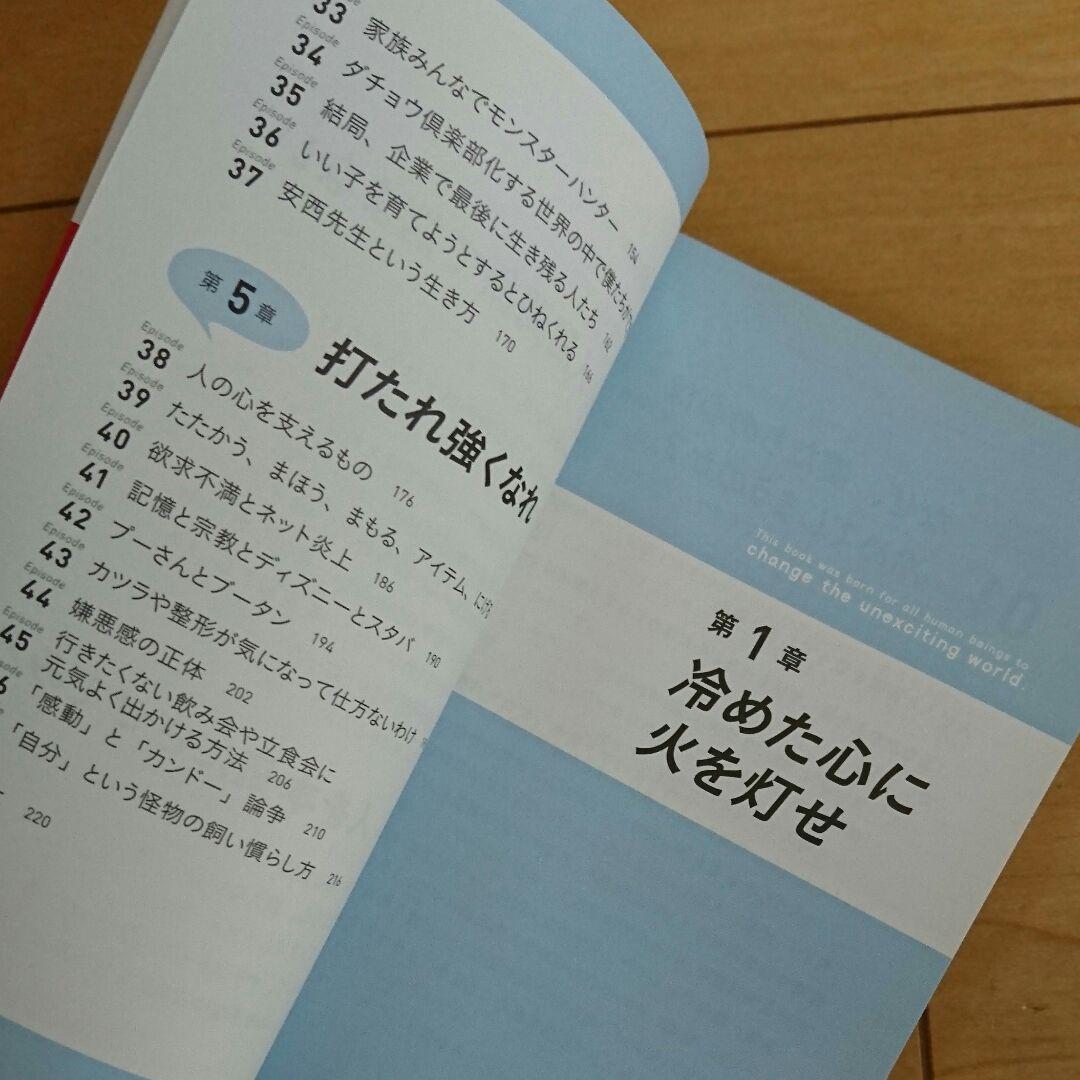 33 家族みんなでモンスターハンター 154
Episode
34 ダチョウ倶楽部化する世界の中で僕たちが
Episode
35 結局、企業で最後に生き残る人たち 162
Episode
36 いい子を育てようとするとひねくれる 166
Episode
37 安西先生という生き方 170
第5章
打たれ強くなれ
Episode
38 人の心を支えるもの 176
Episode
39 たたかう、まほう、まもる、アイテム、にげ
Episode
40 欲求不満とネット炎上 186
Episode
41 記憶と宗教とディズニーとスタバ 190
Episode
42 プーさんとブータン 194
Episode
43 カツラや整形が気になって仕方ないわけ
Episode
44 嫌悪感の正体 202
Episode
45 行きたくない飲み会や立食会に
元気よく出かける方法 206
「感動」と「カンドー」論争 210
「自分」という怪物の飼い慣らし方 216
220
This book was born for all human beings to
change the unexciting world.
第1章
冷めた心に
火を灯せ